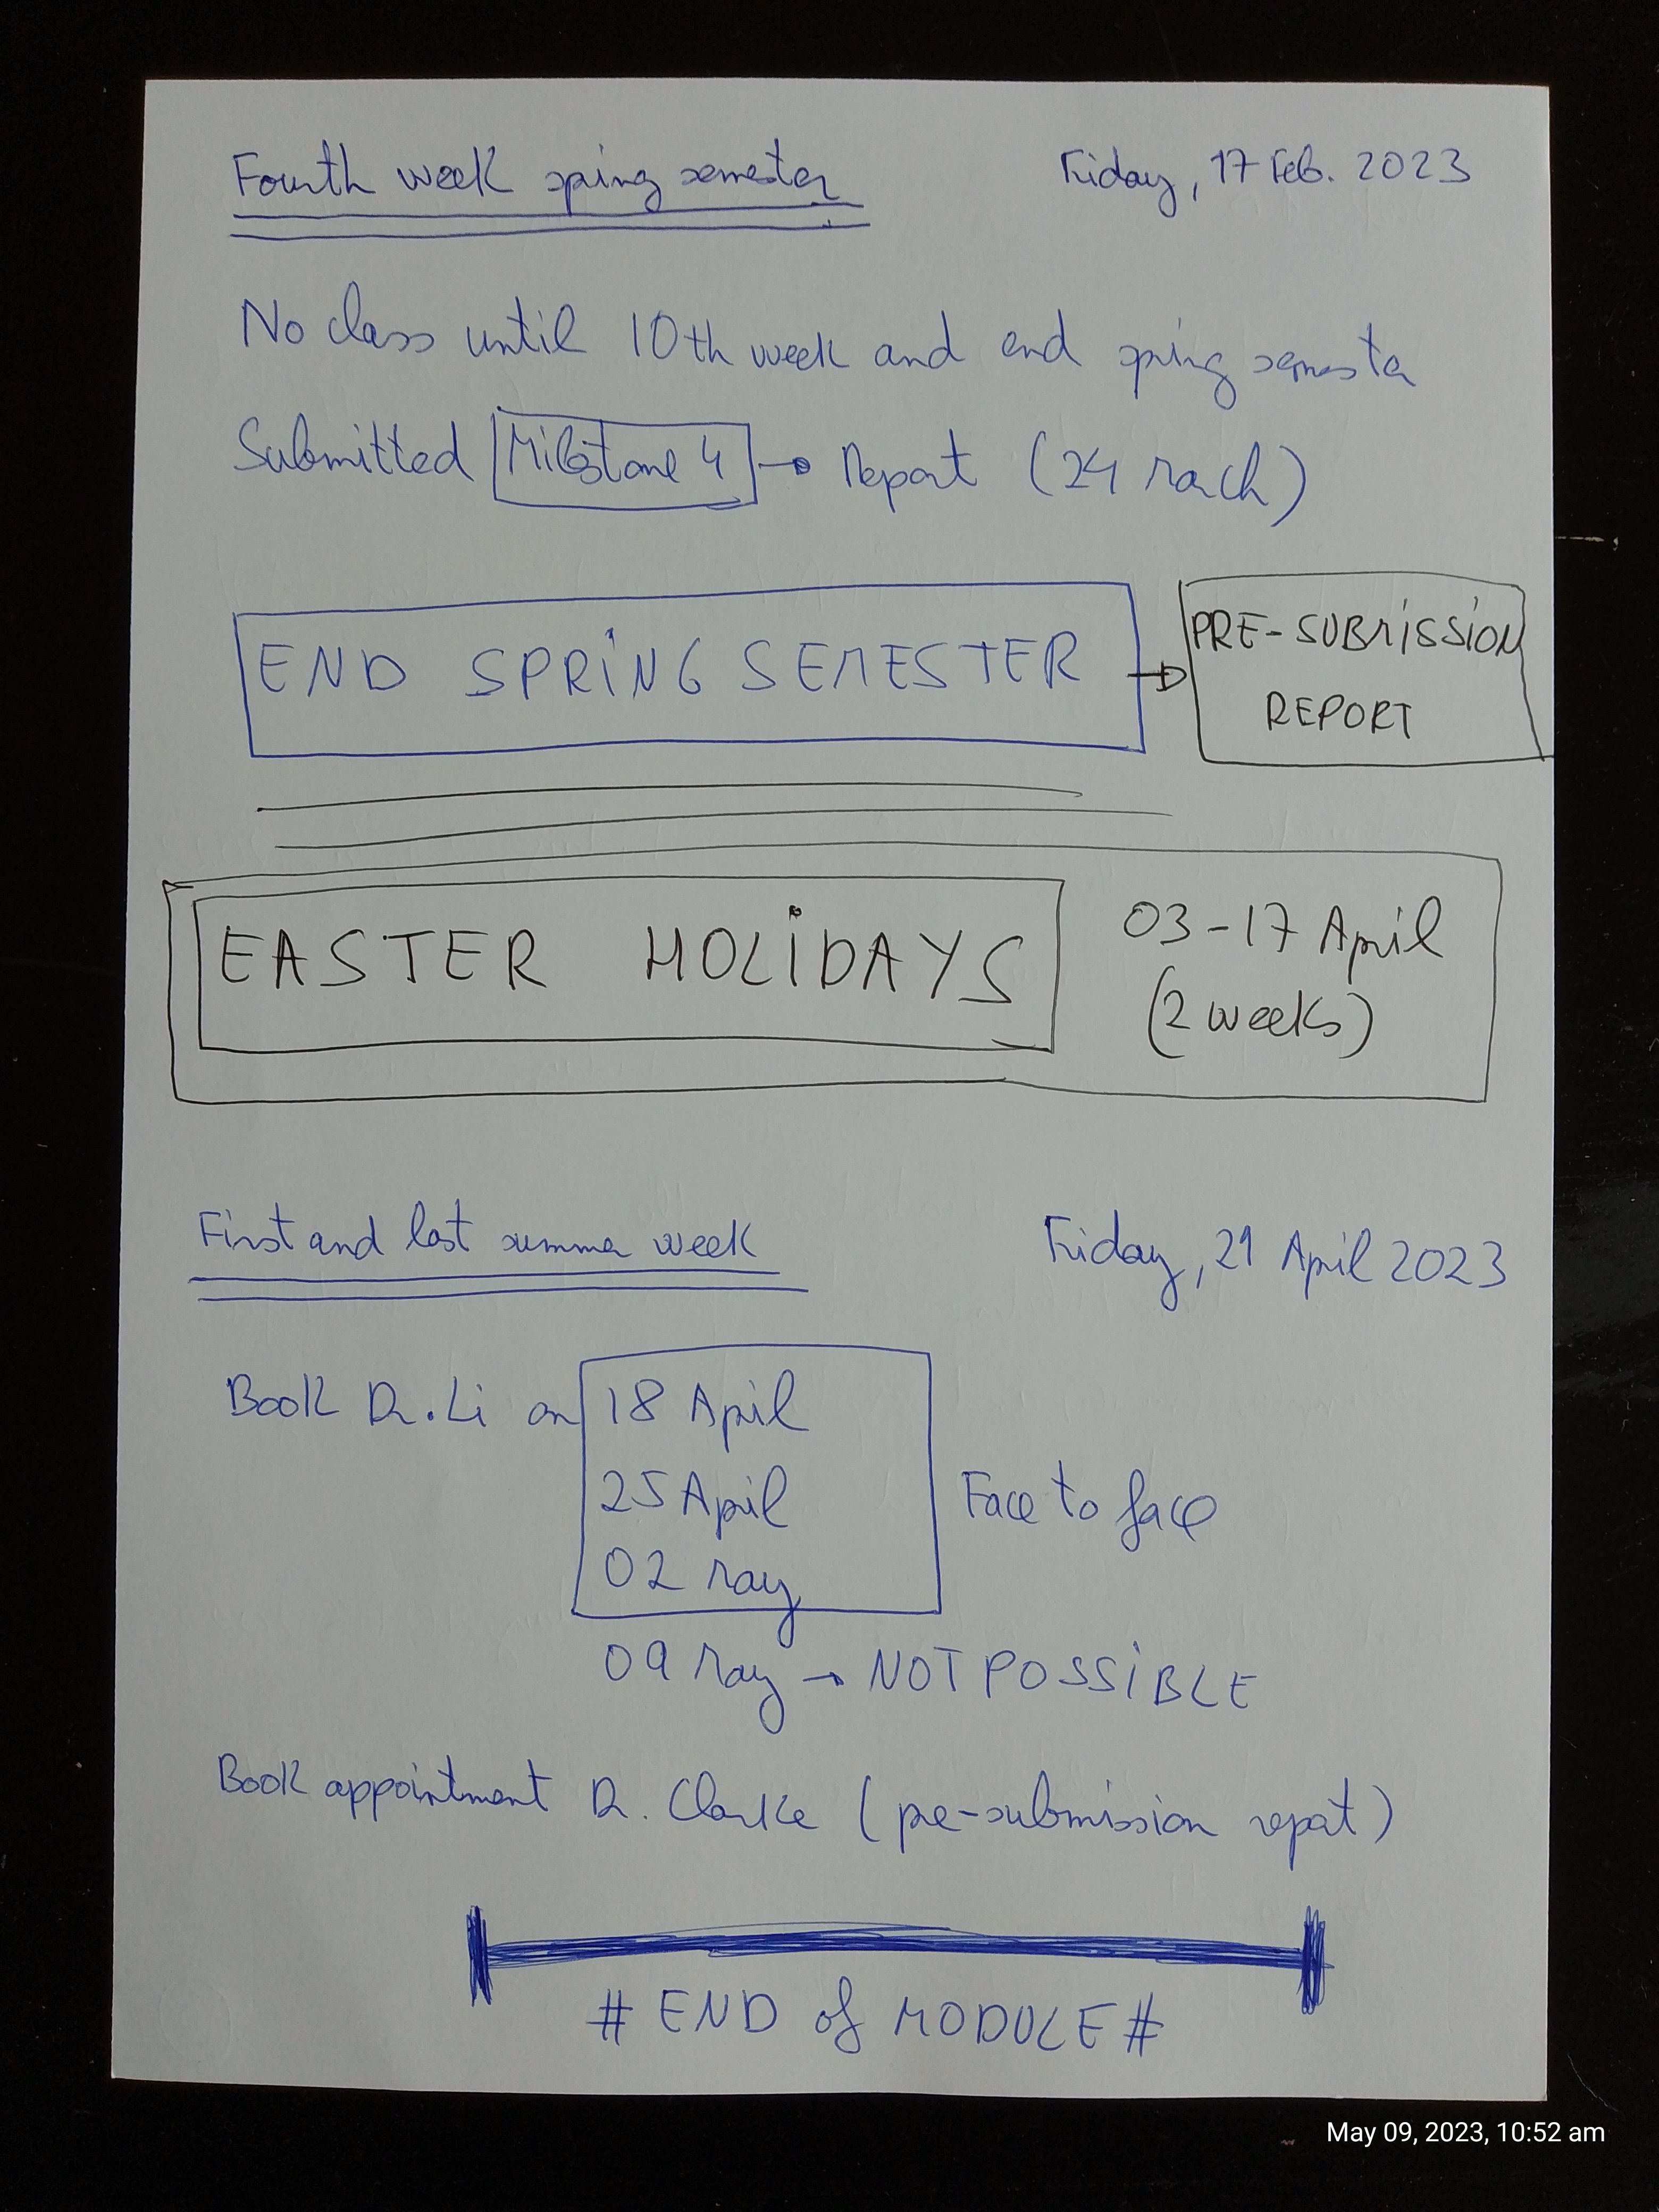 Fourth week spring semester
Friday, 17 Feb. 2023
No class until 10th week and end spring semester
Submitted Milestone 4 → Report (24 March)
END SPRING SEMESTER → PRE-SUBMISSION
REPORT
EASTER HOLIDAYS
03-17 April
(2 weeks)
First and last summer week
Friday, 21 April 2023
Book Dr. Li on 18 April
25 April
Face to face
02 May
09 May → NOT POSSIBLE
Book appointment Dr. Clarke (pre-submission report)
# END of MODULE #
May 09, 2023, 10:52 am